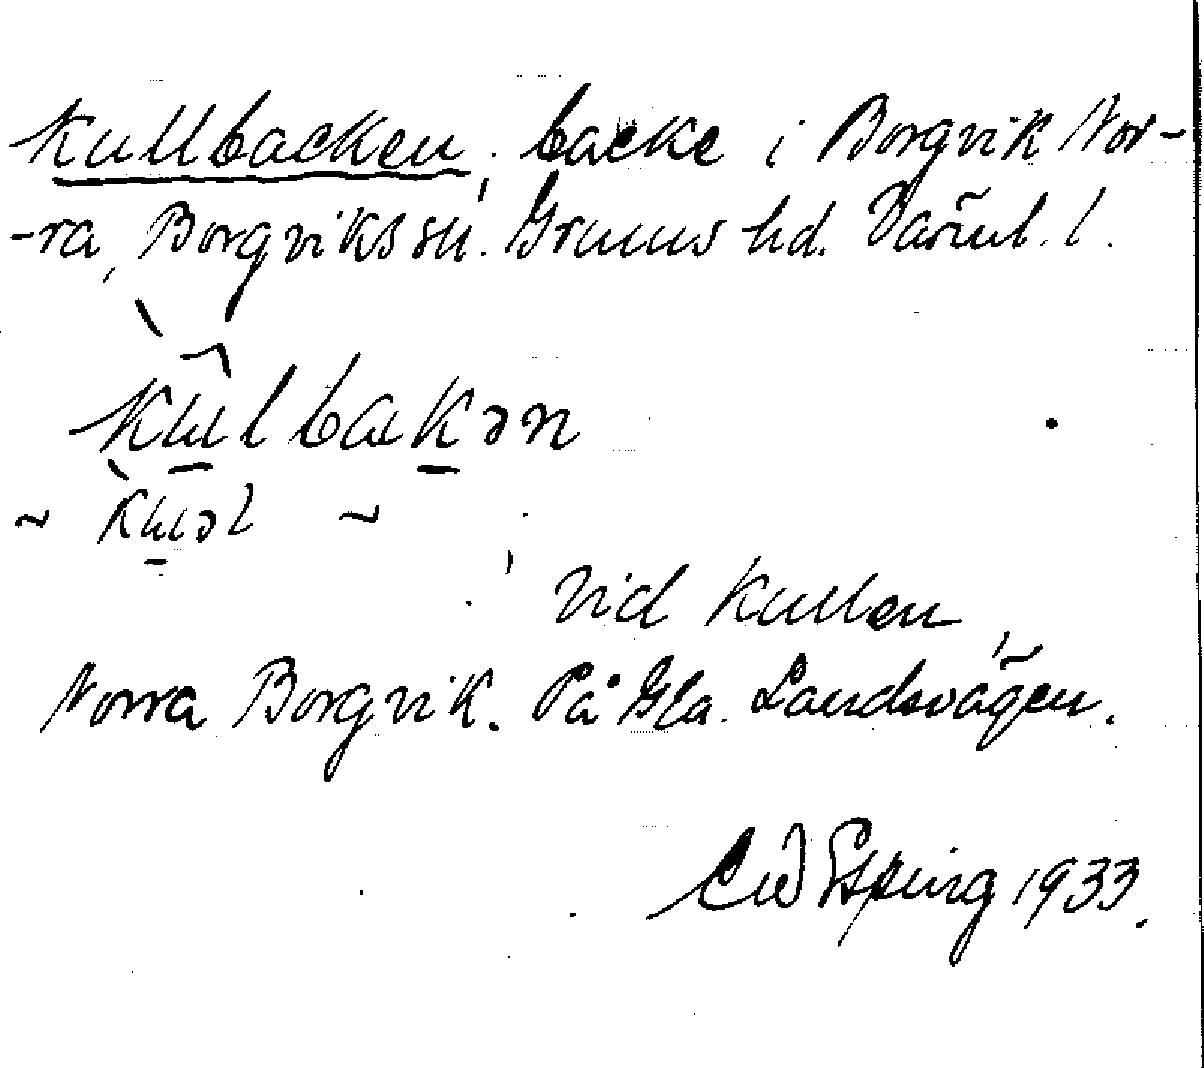 Kullbacken, backe i Borgvik Nor-
-ra, Borgviks sn. Grums hd. Värml. l.
kɯlbakən
~ kɯəl ~
Vid Kullen,
Norra Borgvik. På Gla. Landsvägen.
Esping 1933.